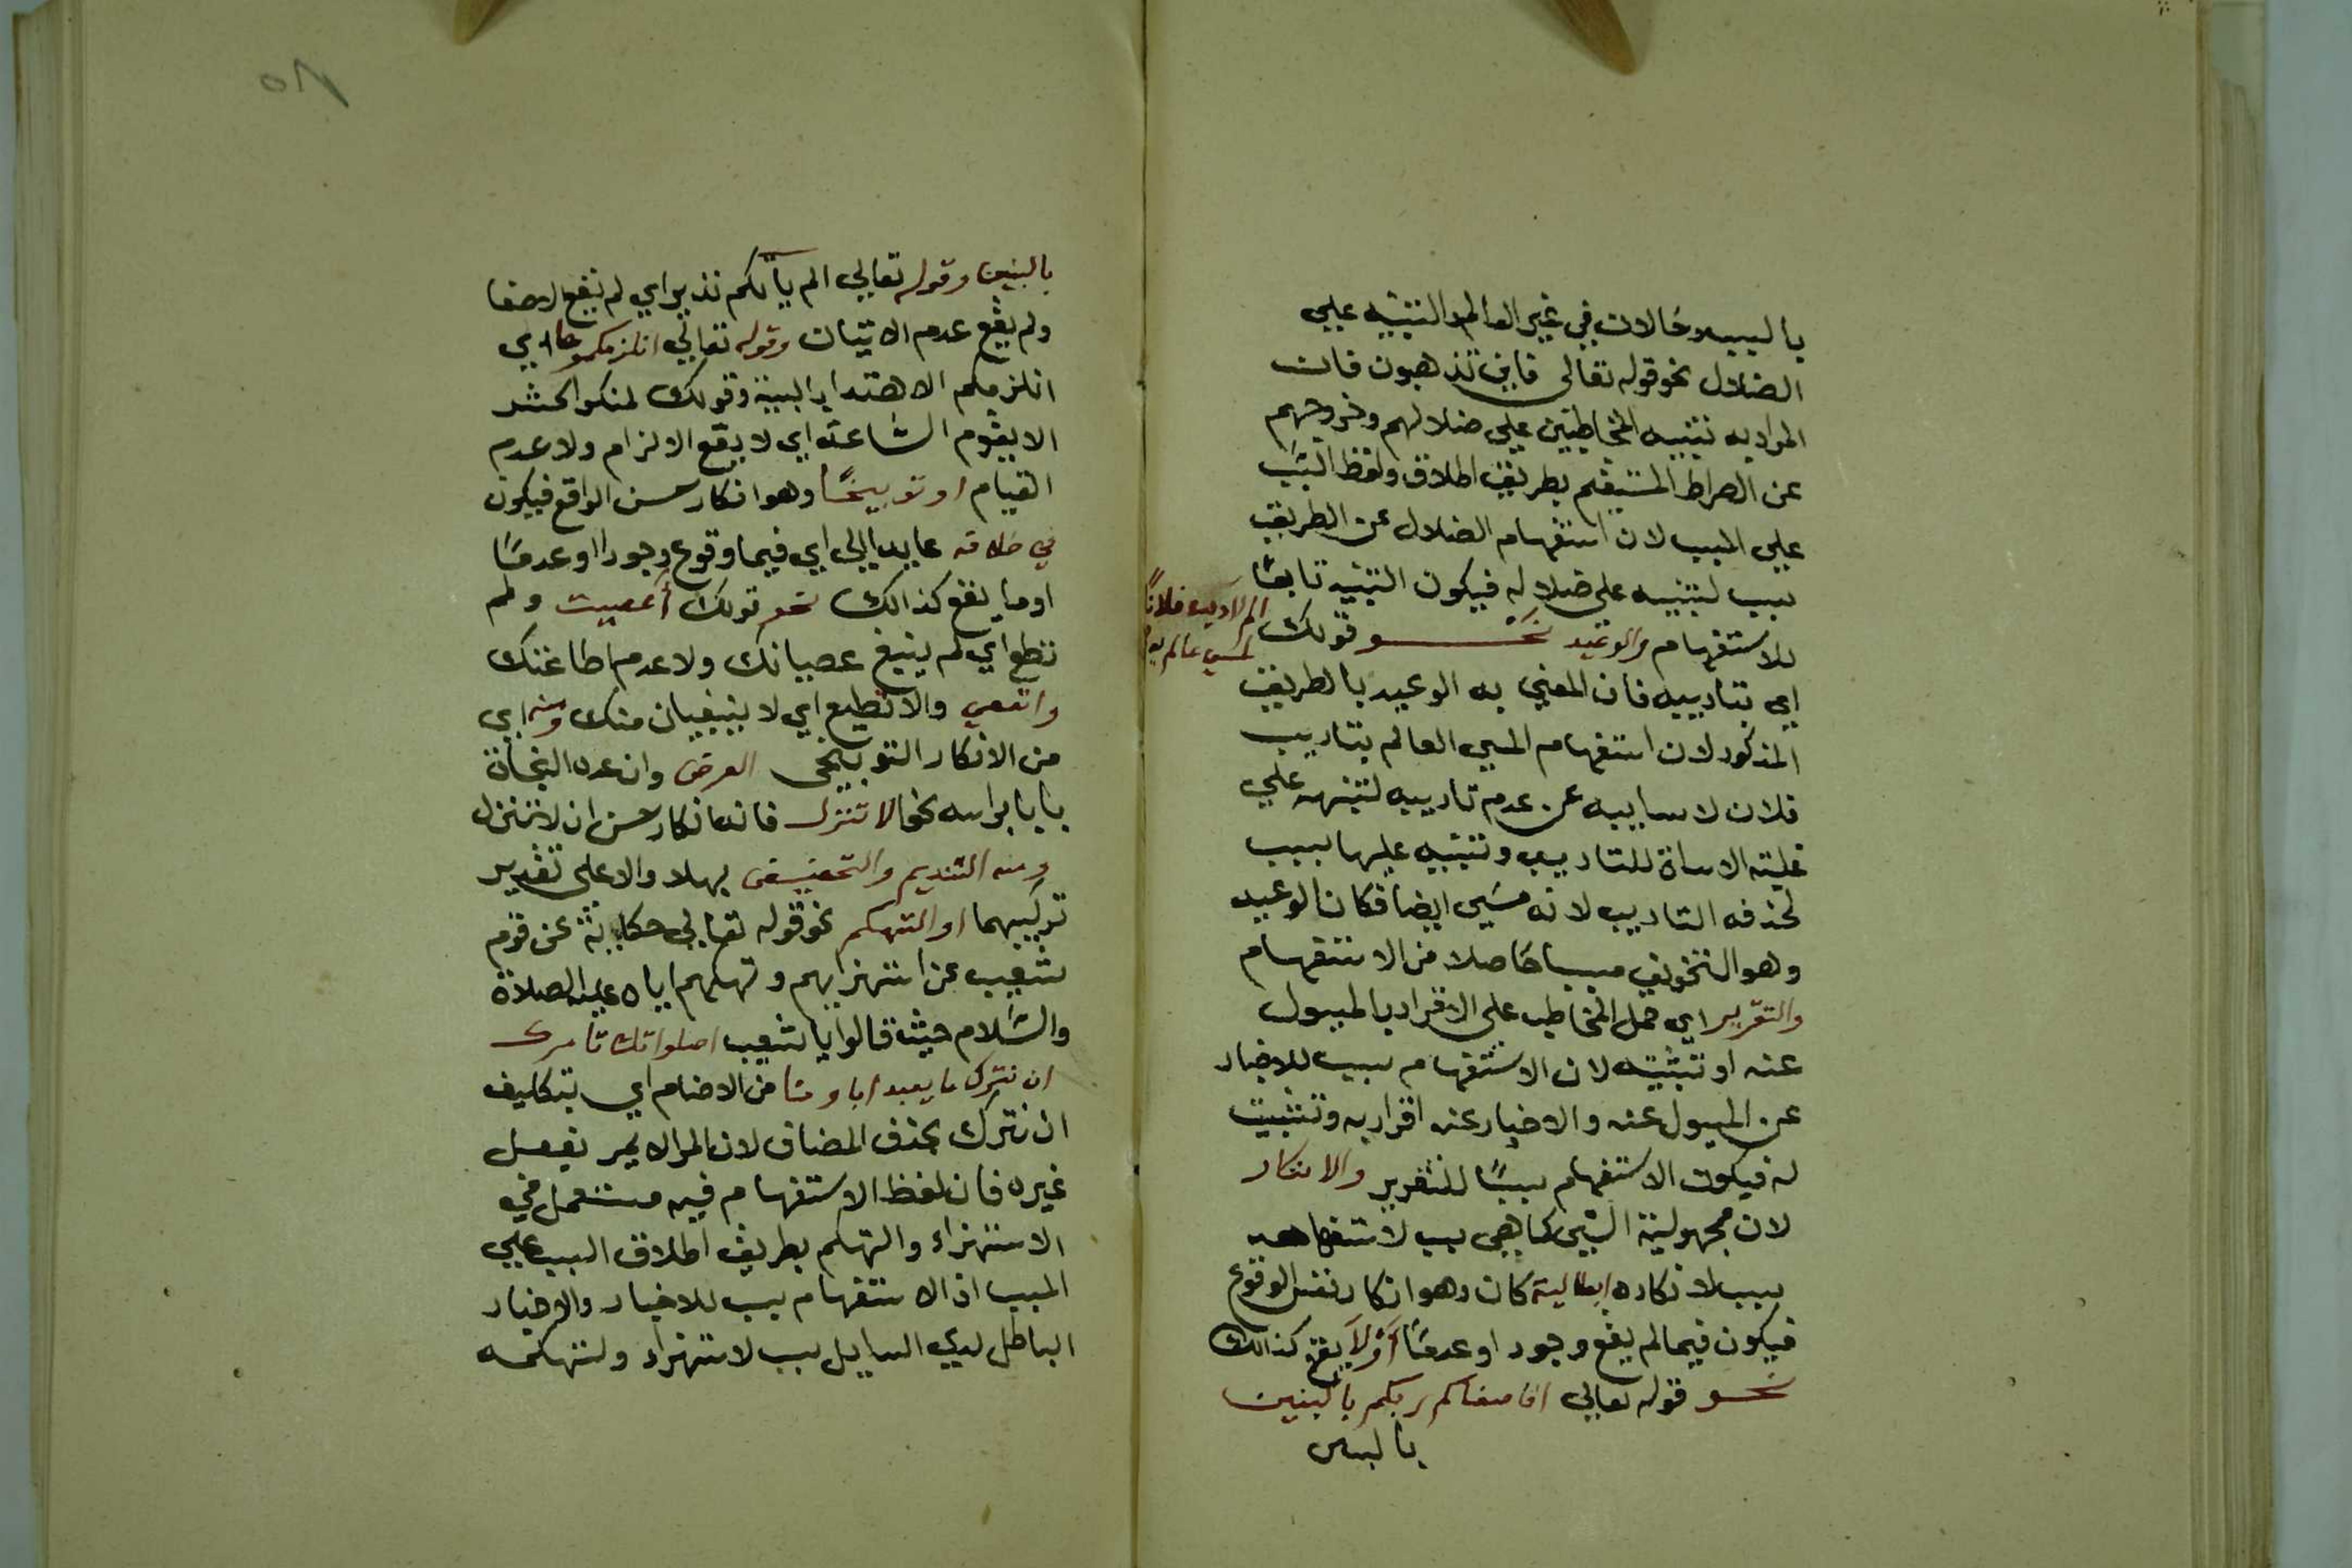 بالسببه حالات في غير العالم والتنبيه علي
الضلال نحو قوله تعالى فاين تذهبون فان
المراد به تنبيه المخاطبين علي ضلالهم وخروجهم
عن الصراط المستقيم بطريق اطلاق ولفظ السبب
علي المسبب لان استفهام الضلال عن الطريق
سبب لتنبيه على ضلاله فيكون التنبيه تابعًا
للاستفهام والوعيد نحو قولك الم اؤدب فلانًا
لمسي عالم به
اي بتاديبه فان المعني به الوعيد بالطريق
المذكور لان استفهام المسي العالم بتاديب
فلان لاساييه عن عدم تاديبه لتنبهه علي
علية الاساة للتاديب وتنبيه عليها سبب
لخذفه التاديب لانه مسي ايضا فكان الوعيد
وهو التخويف مسببا حاصلا من الاستفهام
والتقرير اي حمل المخاطب على الاقرار بالمسول
عنه او تثبيته لان الاستفهام سبب للاخبار
عن المسول عنه والاخبار عنه اقرار به وتثبيت
له فيكون الاستفهام سببًا للتقرير والانكار
لان مجهولية الشي كما هي سبب لاستفهامه
سبب لانكاره ابطالية كان وهو انكار نفس الوقوع
فيكون فيما لم يقع وجود او عدمًا اولا يقع كذالك
نحو قوله تعالي افاصفاكم ربكم بالبنين
بالبنين
بالبنين وقوله تعالي الم يأتكم نذير اي لم يقع لاصفا
ولم يقع عدم الاتيان وقوله تعالي انلزمكموها اي
انلزمكم الاهتدا بالبينة وقولك لمنكر الحشر
الا يقوم الساعة اي لا يقع الالزام ولا عدم
القيام او توبيخًا وهو انكار حسن الواقع فيكون
في خلافه عايد الي اي فيما وقوع وجودا او عدمًا
اوما يقع كذالك نحو قولك أعصيت ولم
تطع اي لم ينبغ عصيانك ولا عدم اطاعتك
واتعصي والا تطيع اي لا ينبغيان منك ومنه اي
من الانكار التوبيخي العرض وان عده النحاة
بابا براسه نحو الا تنزل فانه انكار حسن ان لا تنزل
ومنه التنديم والتحضيض بهلا والا على تقدير
تركيبهما او التهكم نحو قوله تعالي حكاية عن قوم
شعيب عن استهزايهم وتهكمهم اياه عليه الصلاة
والسلام حيث قالوا يا شعيب اصلواتك تأمرك
ان نترك ما يعبد اباونا من الاصنام اي بتكليف
ان نترك بحذف المضاف لان المرا لا يمر بفعل
غيره فان لفظ الاستفهام فيه مستعمل في
الاستهزاء والتهكم بطريق اطلاق السبب علي
المسبب اذ الاستفهام سبب للاخبار والاخبار
الباطل لدي السايل سبب لاستهزاء ولتهكمه